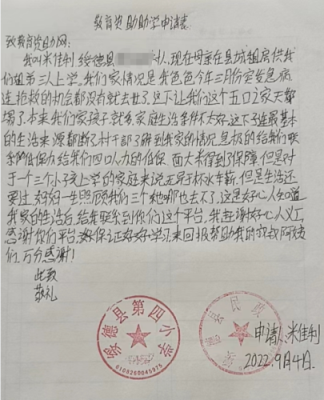 教育资助助学申请书
致教育资助网：
我叫米佳利 绥德县 人,现在母亲在县城租房供我
们姐弟三人上学,我们家情况是我爸爸今年三月份突发急病
连抢救的机会都没有就去世了,这下让我们这个五口之家天都
塌了,本来我们家孩子多家庭生活条件不太好,这下连最基本
的生活来源都断了,村干部了解到我家的情况后积极的给我们联
系网低保为给我们四口人办的低保 面大米得到了保障,但是对
于一个三个小孩上学的家庭来说无异于杯水车薪,但是生活还
要过 妈妈一生照顾我们三个她哪也去不了,这是好心人知道
我家的生活后给我联系到你们这个平台,我在谢好心人义工
感谢你们平台,我保证好好学习来回报帮助我的叔叔阿姨
们,万分感谢!
此致
敬礼
绥德县第四小学
6108260045975
绥德县民政
申请人:米佳利
2022.9月4日